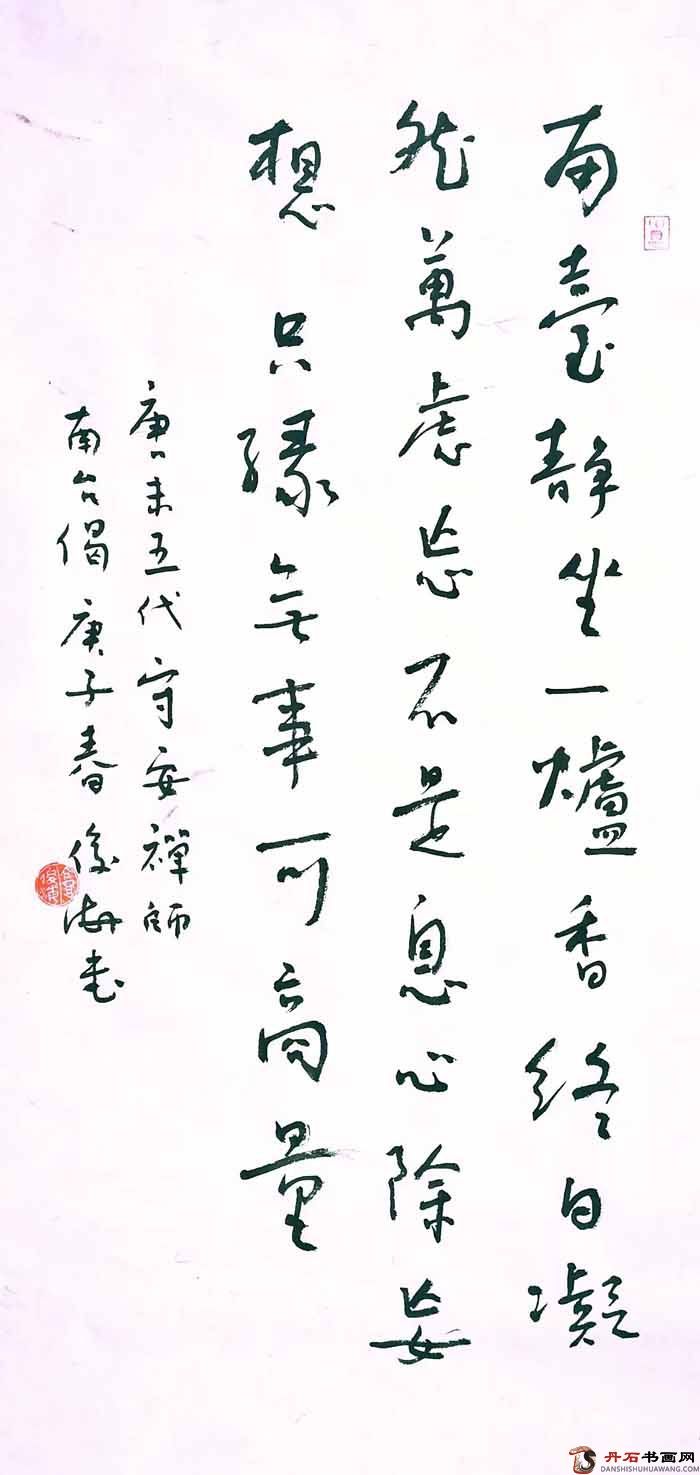 南臺静坐一爐香終日凝
然萬虑忘不是息心除妄
想只緣無事可商量
唐末五代守安禪師
南台偈庚子春俊海书
丹石书画网
DANSHISHUHUAWANG.COM